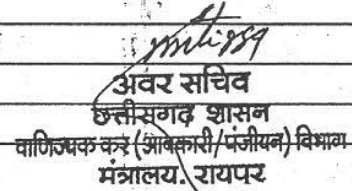 अवर सचिव
छत्तीसगढ़ शासन
वाणिज्यक कर (आबकारी/पंजीयन) विभाग
मंत्रालय, रायपर